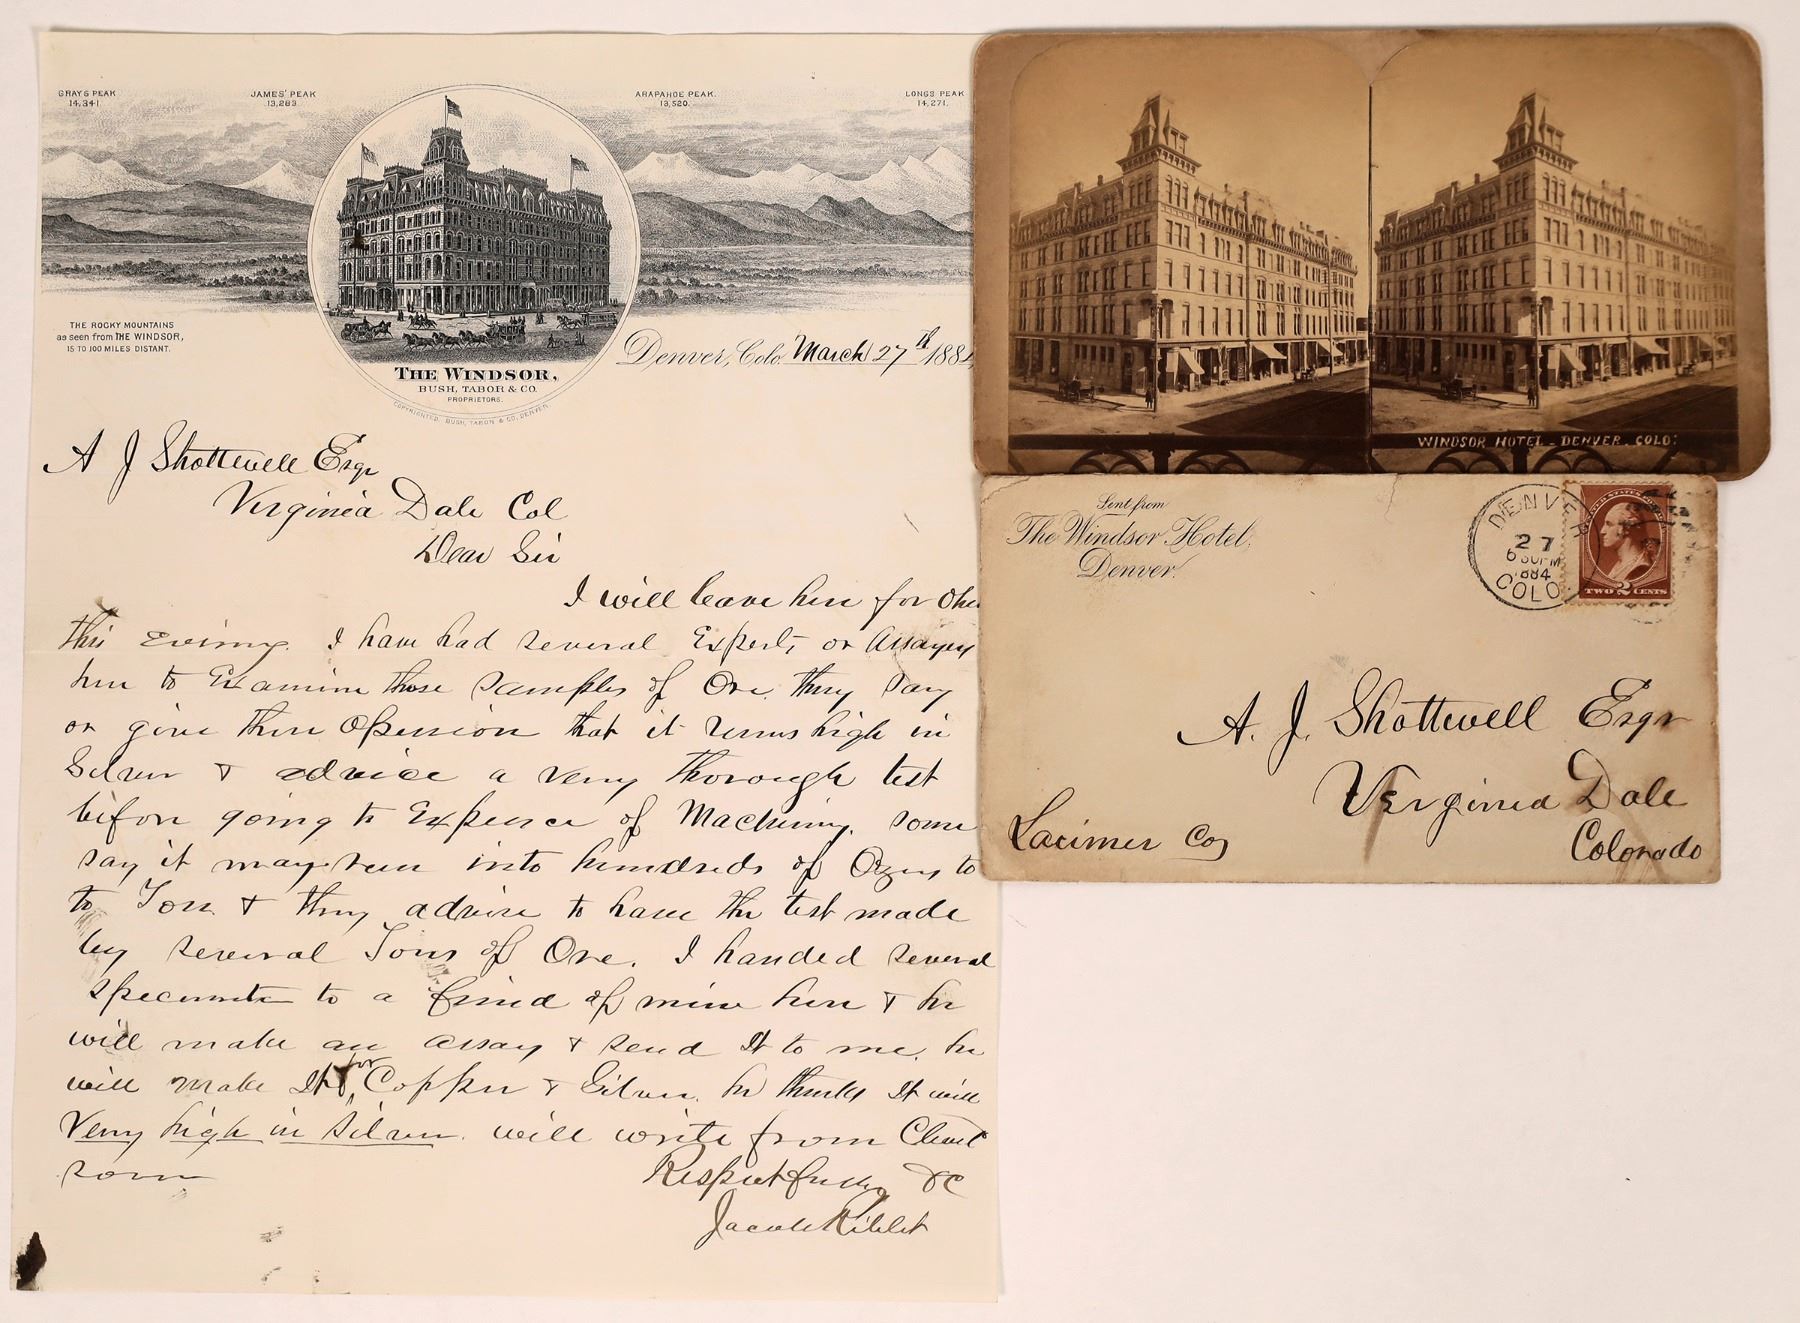 GRAYS PEAK
14,341.
JAMES' PEAK
13,283.
ARAPAHOE PEAK.
13,520.
LONGS PEAK
14,271.
THE ROCKY MOUNTAINS
as seen from THE WINDSOR,
15 TO 100 MILES DISTANT.
THE WINDSOR,
BUSH, TABOR & CO.
PROPRIETORS.
COPYRIGHTED. BUSH, TABOR & CO, DENVER.
Denver, Colo. March 27th 1884
A J Shottwell Esqr
Virginia Dale Col
Dear Sir
I will leave here for
this Evining. I have had several Experts or Assayers
here to Examine those samples of Ore. they say
or give there Opinion that it runs high in
Silver & advice a very thorough test
before going to Expence of Machinery. some
say it may run into hundreds of to
to Ton & they advise to have the test made
by several Tons of Ore. I handed several
to a friend of mine here & he
will make an assay & send It to me. he
will make It for Copper & Silver. he thinks It will
very high in silver. will write from
soon
Respectfully &C
Jacob Riblet
WINDSOR HOTEL - DENVER. COLO:
Sent from
The Windsor Hotel,
Denver.
DENVER
27
630PM
1884
COLO.
TWO 2 CENTS
A. J. Shottwell Esqr
Virginia Dale
Larimer Co
Colorado